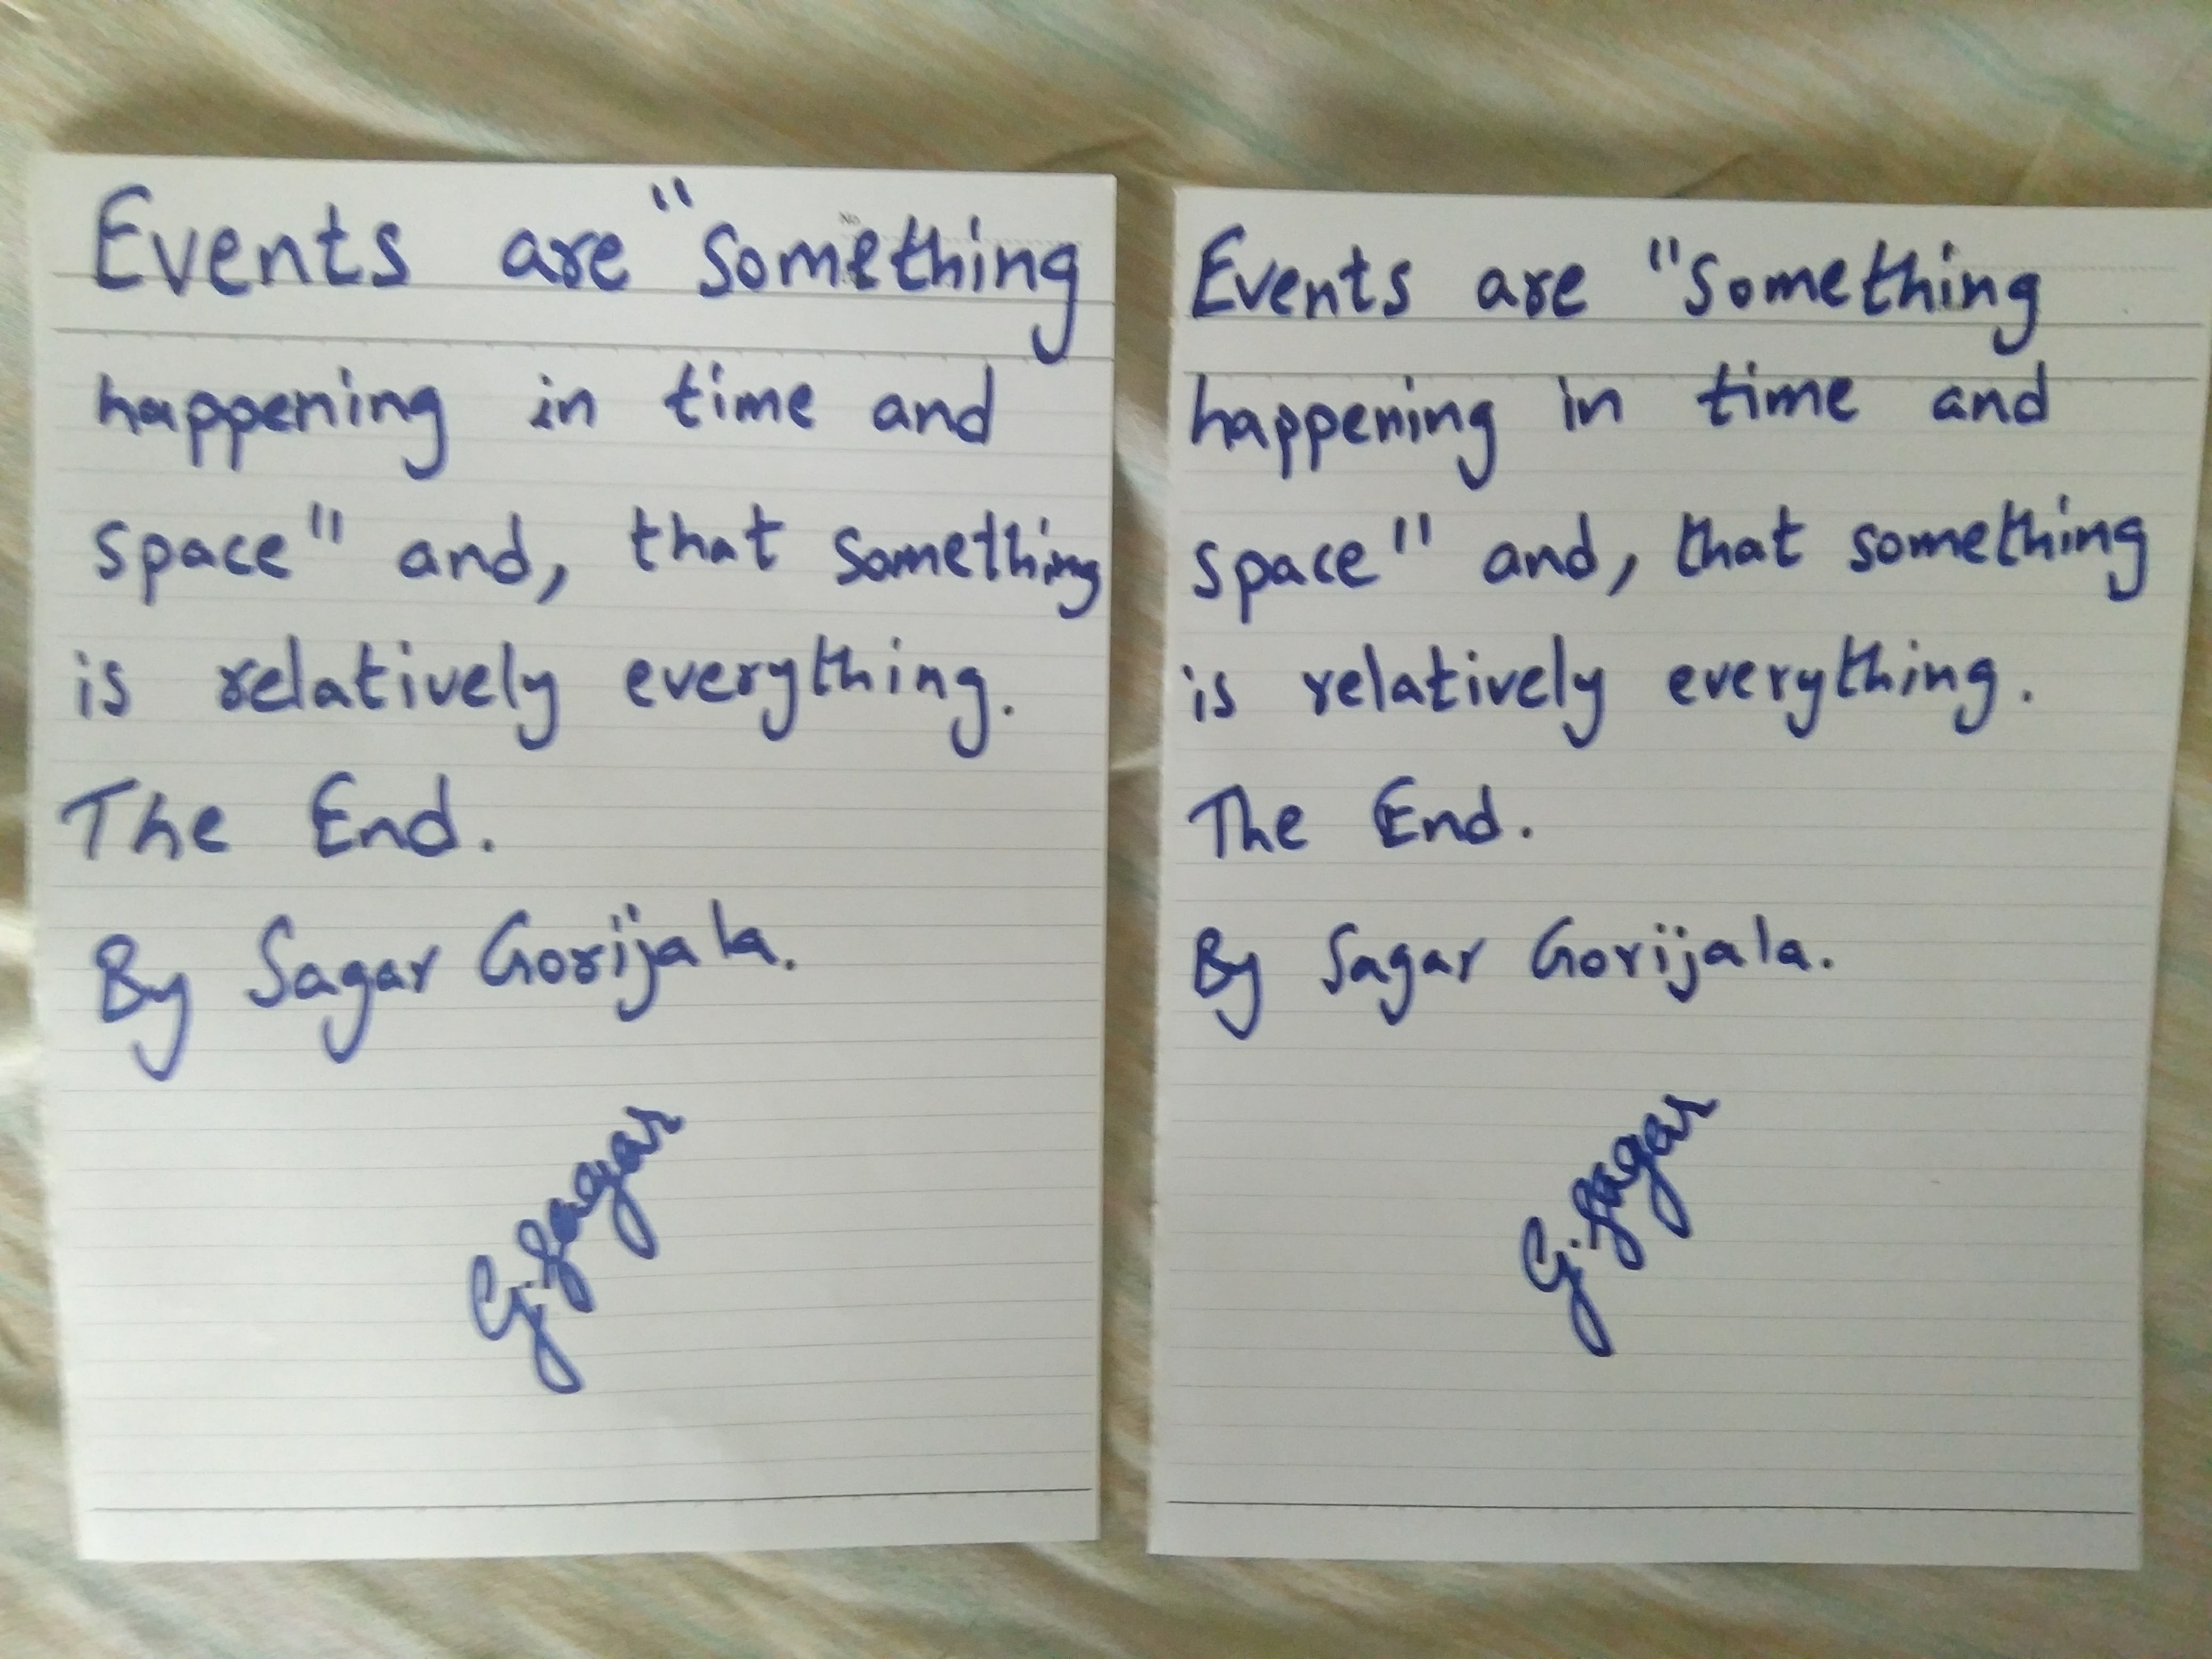 Events are "Something
happening in time and
space" and, that something
is relatively everything.
The End.
By Sagar Gorijala.
G. Sagar
Events are "Something
happening in time and
space" and, that something
is relatively everything.
The End.
By Sagar Gorijala.
G. Sagar